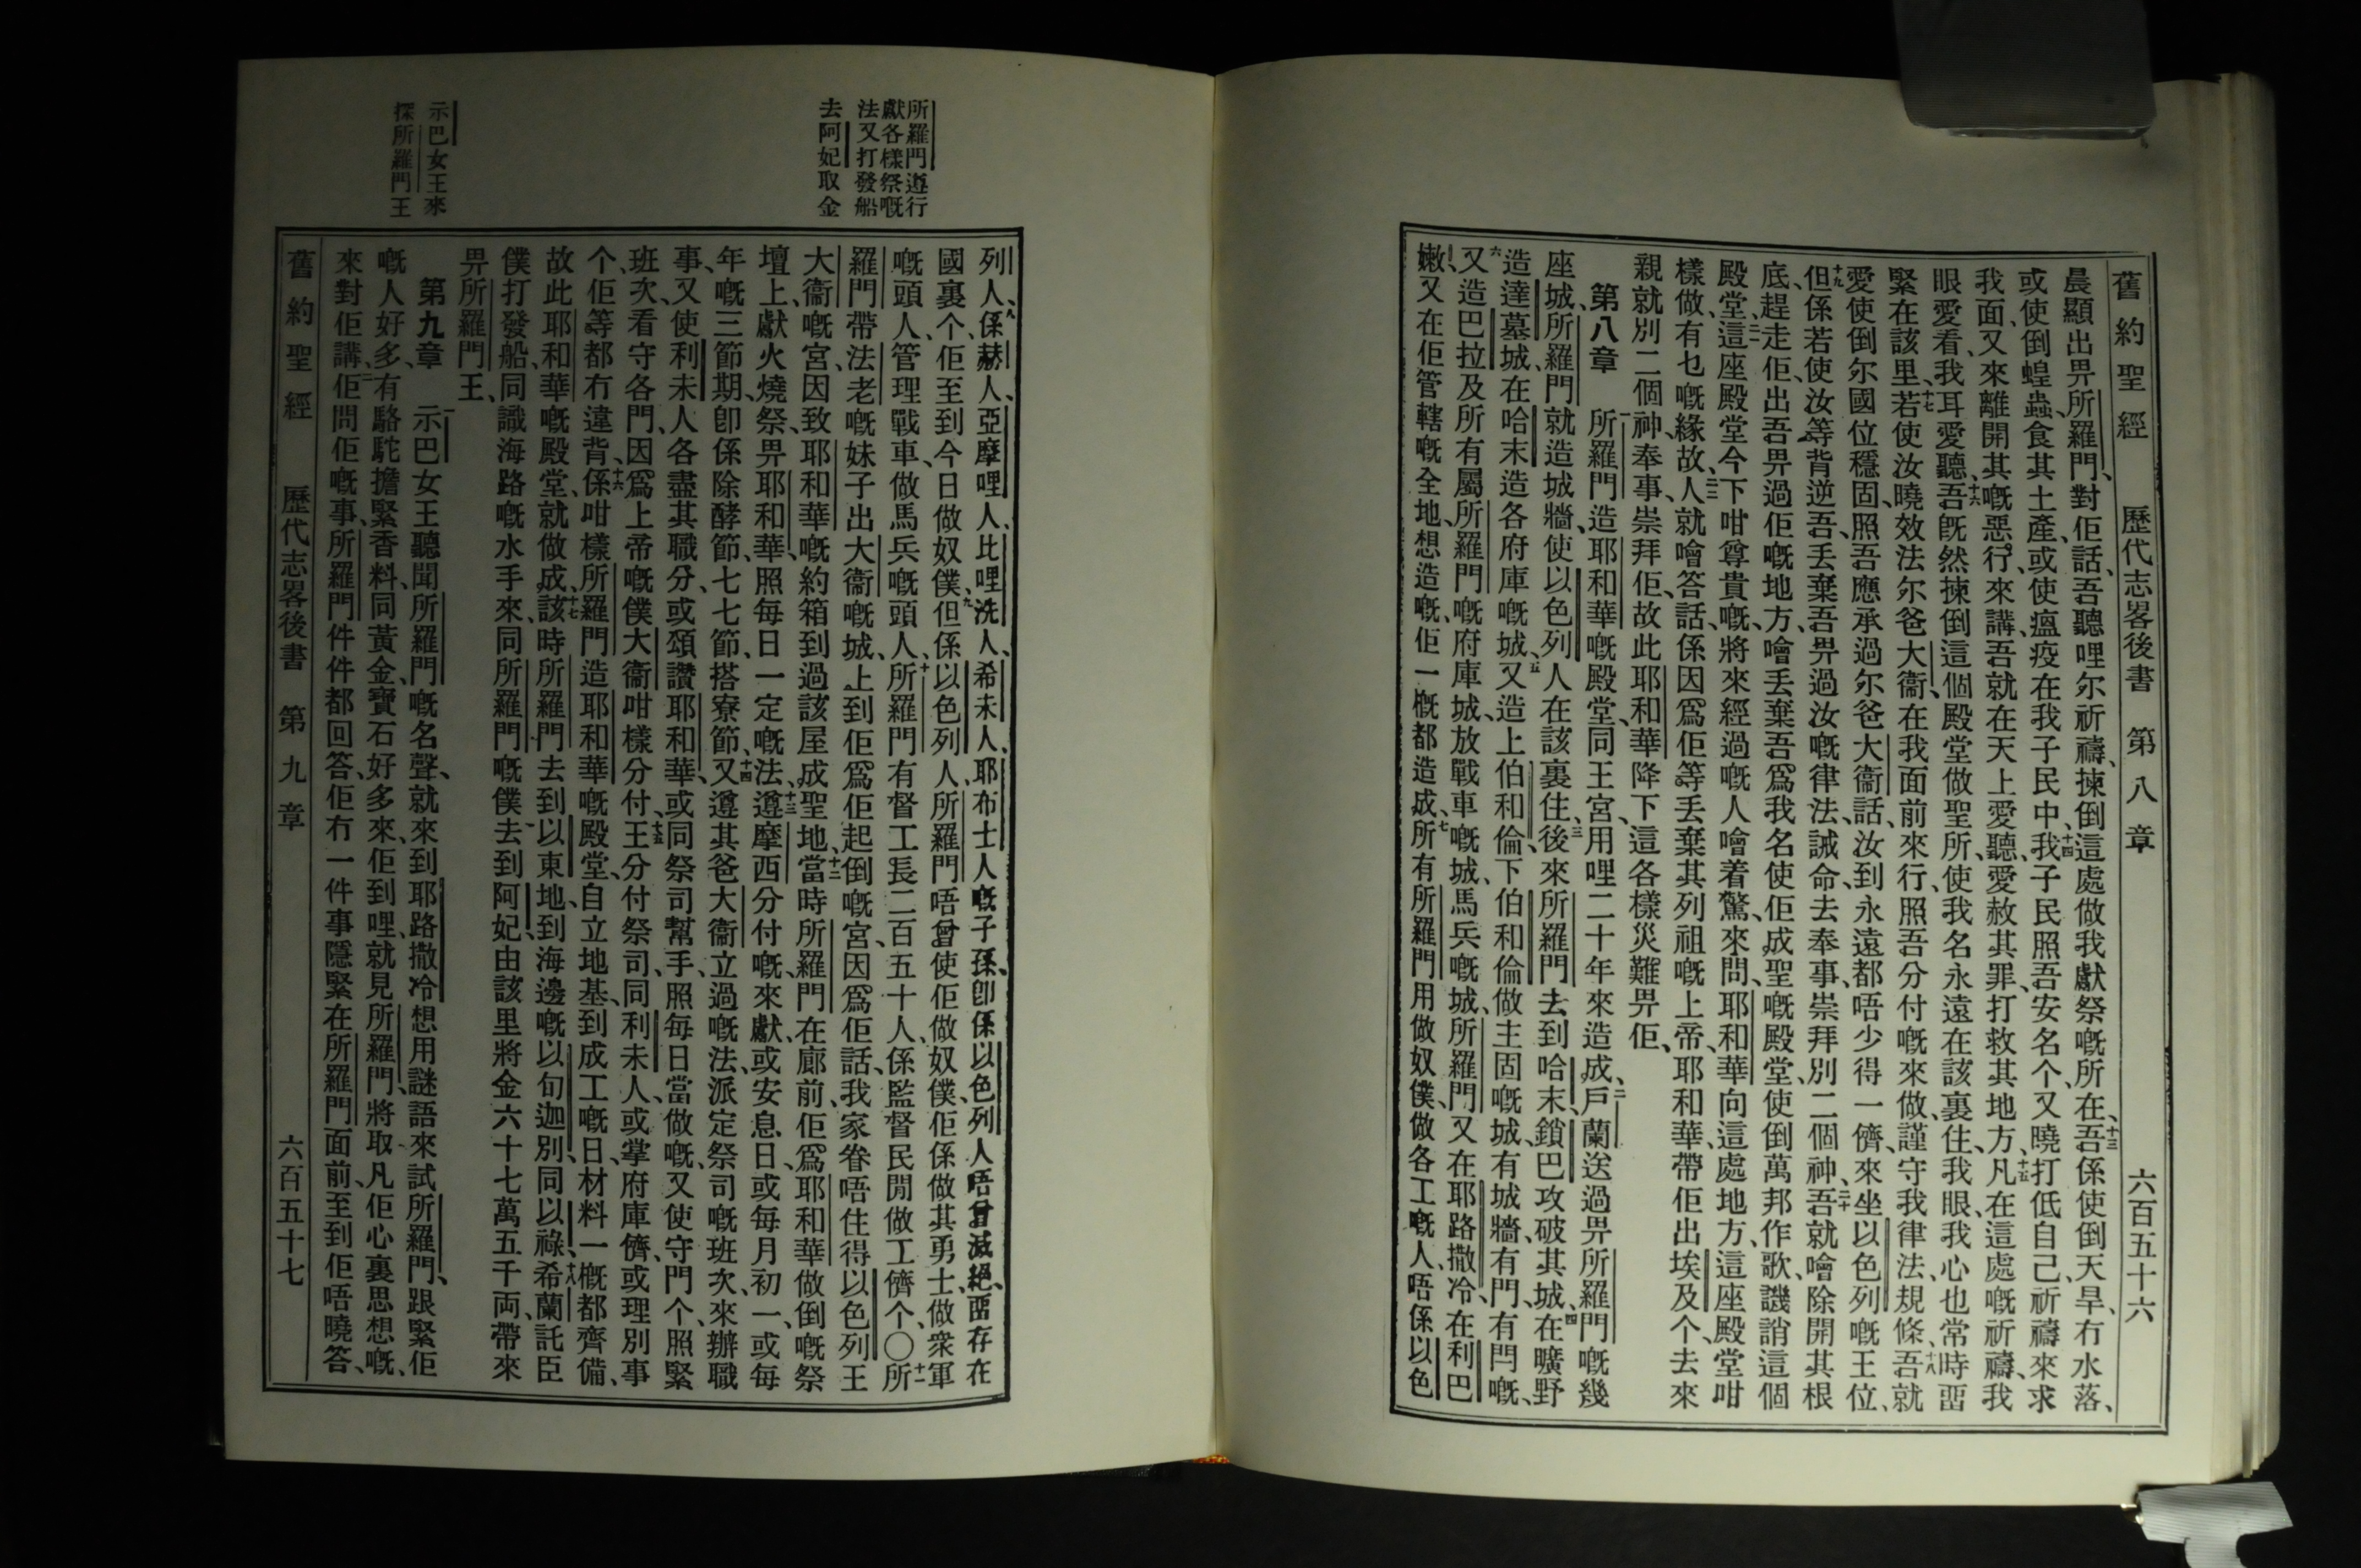 舊約聖經 歷代志畧後書 第八章 六百五十六
晨顯出畀所羅門、對佢話、吾聽哩尔祈禱、揀倒這處做我獻祭嘅所在、十三吾係使倒天旱、冇水落、
或使倒蝗蟲、食其土產、或使瘟疫在我子民中、十四我子民照吾安名个、又曉打低自己、祈禱來求
我面、又來離開其嘅惡行、來講、吾就在天上愛聽、愛赦其罪、打救其地方、十五凡在這處嘅祈禱、我
眼愛看、我耳愛聽、十六吾旣然揀倒這個殿堂做聖所、使我名永遠在該裏住、我眼我心也常時畱
緊在該里、十七若使汝曉效法尔爸大衞、在我面前來行、照吾分付嘅來做、謹守我律法、規條、十八吾就
愛使倒尔國位穩固、照吾應承過尔爸大衞話、汝到永遠都唔少得一儕、來坐以色列嘅王位、
十九但係若使汝等背逆吾、丢棄吾畀過汝嘅律法、誡命、去奉事、崇拜別二個神、二十吾就噲除開其根
底、趕走佢出吾畀過佢嘅地方、噲丢棄吾爲我名使佢成聖嘅殿堂、使倒萬邦作歌、譏誚這個
殿堂、二一這座殿堂今下咁尊貴嘅、將來經過嘅人噲着驚、來問、耶和華向這處地方、這座殿堂咁
樣做、有乜嘅緣故、二二人就噲答話、係因爲佢等丢棄其列祖嘅上帝、耶和華、帶佢出埃及个、去來
親就別二個神、奉事、崇拜佢、故此耶和華降下這各樣災難畀佢、
第八章 一所羅門造耶和華嘅殿堂、同王宮、用哩二十年來造成、二戶蘭送過畀所羅門嘅幾
座城、所羅門就造城牆、使以色列人在該裏住、三後來所羅門去到哈末、鎖巴攻破其城、四在曠野
造達墓城、在哈末造各府庫嘅城、五又造上伯和倫、下伯和倫、做主固嘅城、有城牆、有門、有閂嘅、
六又造巴拉及所有屬所羅門嘅府庫城、放戰車嘅城、馬兵嘅城、所羅門又在耶路撒冷、在利巴
嫩、又在佢管轄嘅全地、想造嘅、佢一概都造成、七所有所羅門用做奴僕、做各工嘅人、唔係以色
所羅門遵行
獻各樣祭嘅
法又打發船
去阿妃取金
示巴女王來
探所羅門王
列人、八係赫人、亞摩哩人、比哩洗人、希未人、耶布士人嘅子孫、卽係以色列人唔曾滅絕、畱存在
國裏个、佢至到今日做奴僕、九但係以色列人、所羅門唔曾使佢做奴僕、佢係做其勇士、做衆軍
嘅頭人、管理戰車、做馬兵嘅頭人、十所羅門有督工長二百五十人、係監督民閒做工儕个、〇十一所
羅門帶法老嘅妹子出大衞嘅城、上到佢爲佢起倒嘅宮、因爲佢話、我家眷唔住得以色列王
大衞嘅宮、因致耶和華嘅約箱到過該屋、成聖地、十二當時所羅門在廊前、佢爲耶和華做倒嘅祭
壇上、獻火燒祭、畀耶和華、照每日一定嘅法、十三遵摩西分付嘅、來獻、或安息日、或每月初一、或每
年嘅三節期、卽係除酵節、七七節、搭寮節、十四又遵其爸大衞立過嘅法、派定祭司嘅班次、來辦職
事、又使利未人各盡其職分、或頌讚耶和華、或同祭司幫手、照每日當做嘅、又使守門个、照緊
班次、看守各門、因爲上帝嘅僕大衞咁樣分付、十五王分付祭司、同利未人、或掌府庫儕、或理別事
个、佢等都冇違背、十六係咁樣所羅門造耶和華嘅殿堂、自立地基、到成工嘅日、材料一概都齊備、
故此耶和華嘅殿堂、就做成、十七該時所羅門去到以東地、到海邊嘅以旬迦別、同以祿、十八希蘭託臣
僕打發船、同識海路嘅水手來、同所羅門嘅僕去到阿妃、由該里將金六十七萬五千両、帶來
畀所羅門王、
第九章 一示巴女王聽聞所羅門嘅名聲、就來到耶路撒冷想用謎語來試所羅門、跟緊佢
嘅人好多、有駱駝擔緊香料、同黃金、寶石好多來、佢到哩、就見所羅門、將取凡佢心裏思想嘅、
來對佢講、二佢問佢嘅事、所羅門件件都回答、佢冇一件事隱緊在所羅門面前、至到佢唔曉答、
舊約聖經 歷代志畧後書 第九章 六百五十七